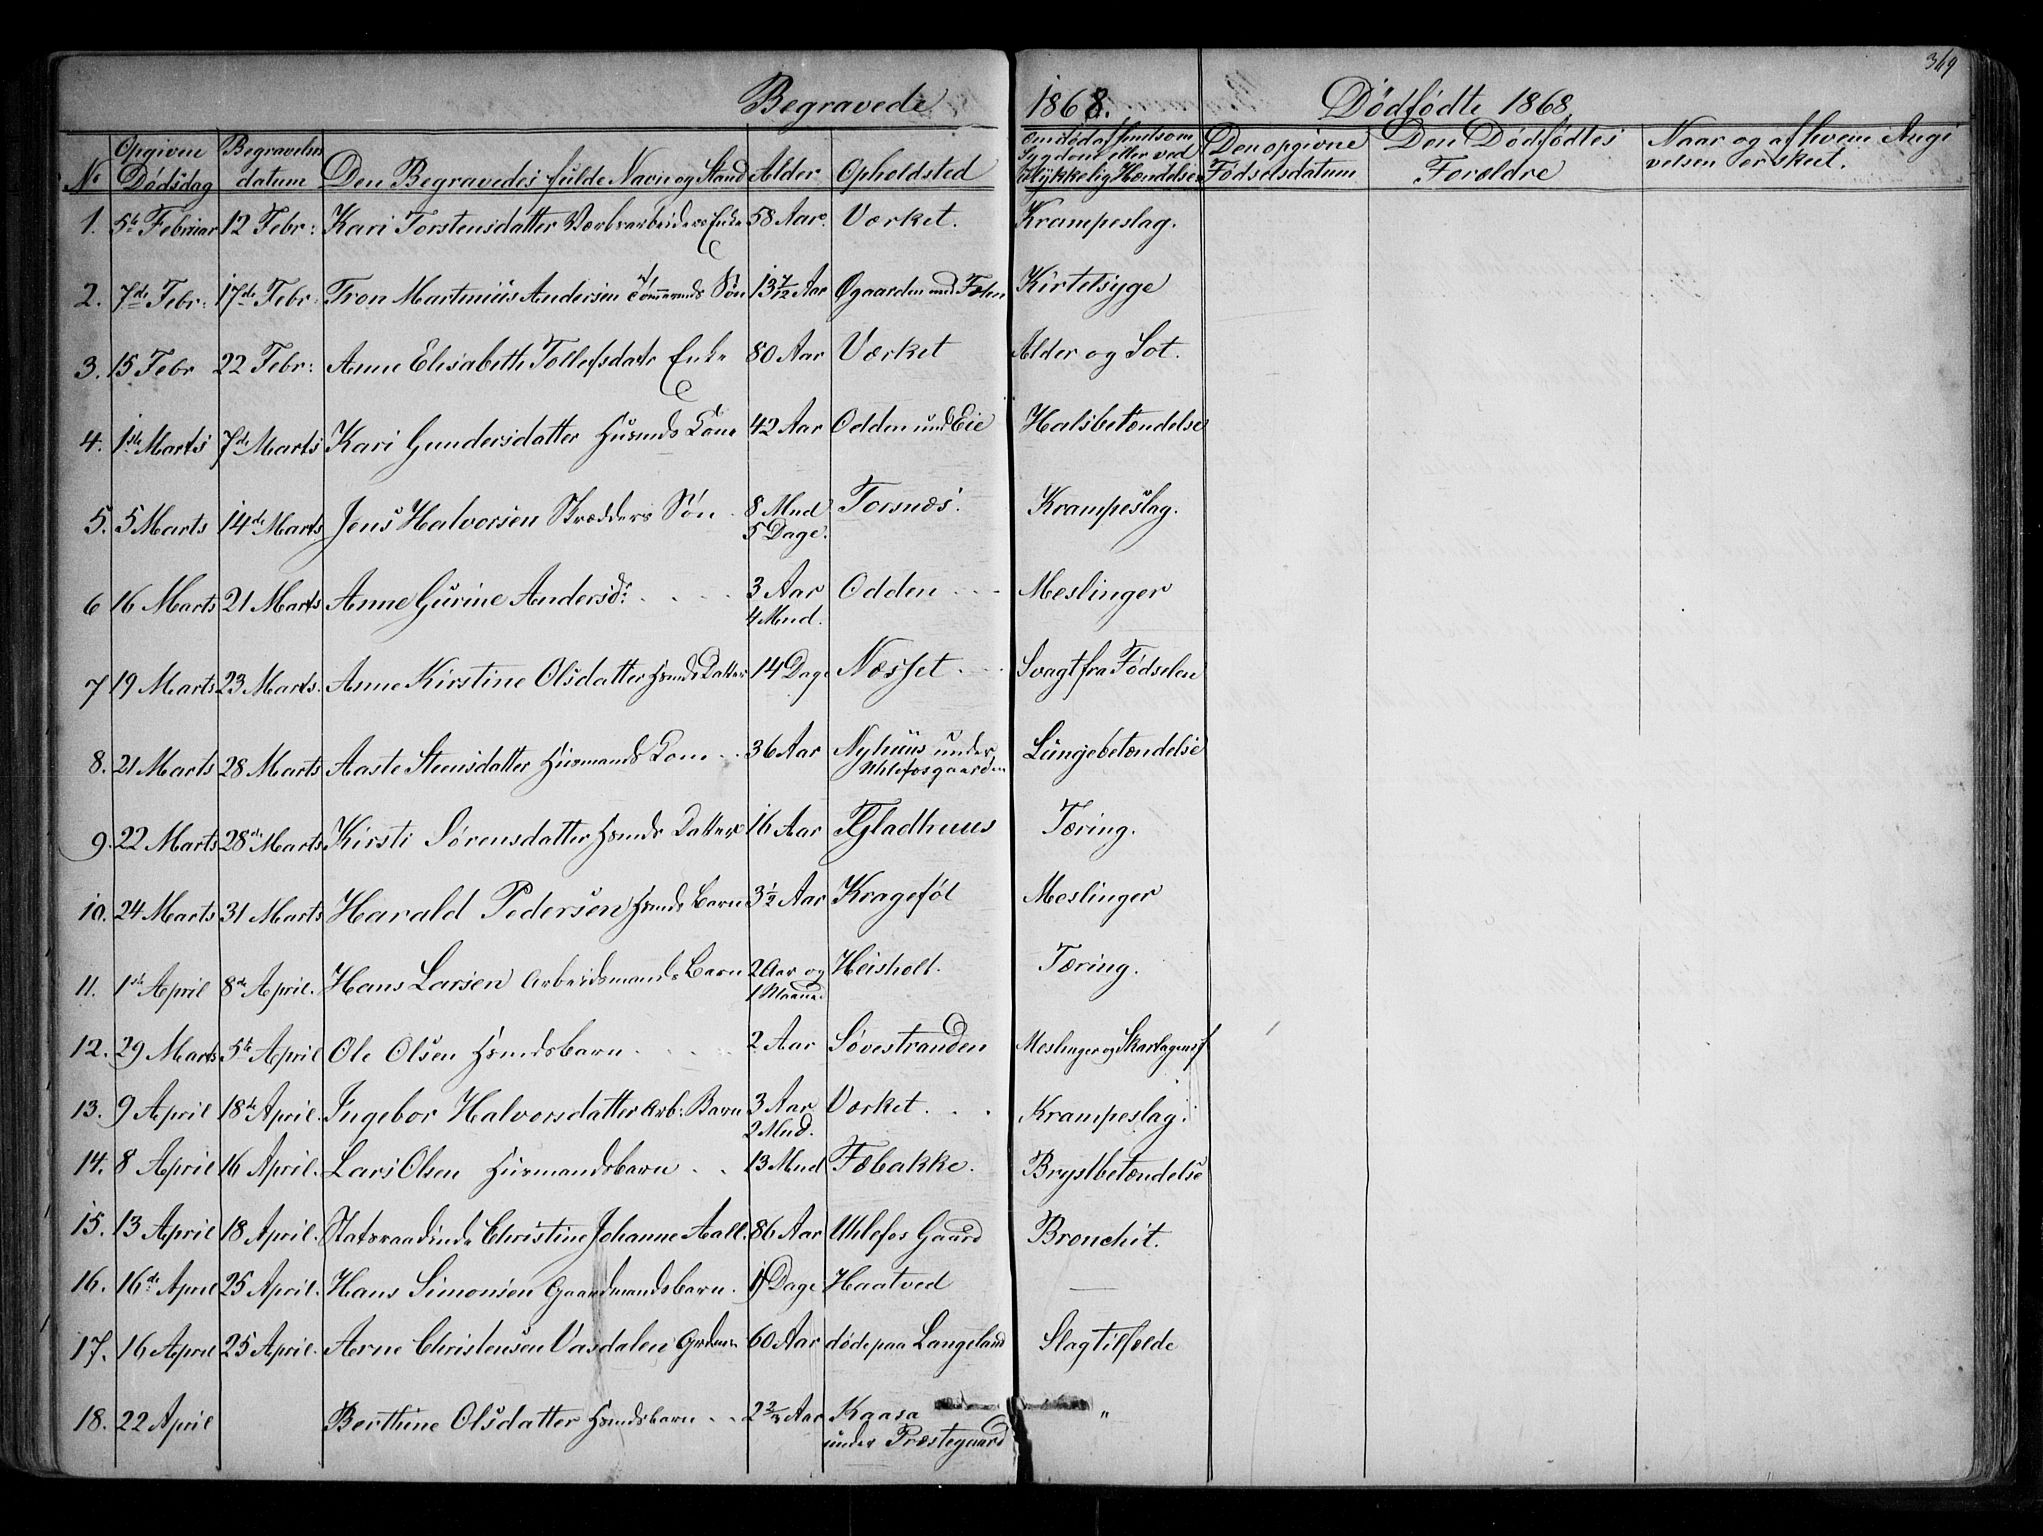 369
Begravede
1868.
Dödfödte 1868
No
Opgiven Dödsdag
Begravelses datum
Den Begravedes fulde Navn og Stand
Alder
Opholdsted
Om död af smitsom Sygdom eller ved Ulykkelig Hændelse
Den opgivne Födselsdatum
Den Dödfödtes Forældre
Naar og af hvem Angivelsen er skeet.
1. 5te Februar 12 Febr: Kari Torstensdatter Værksarbeiders Enke 58 Aar. Værket. Krampeslag.
2. 7de Febr: 17de Febr: Tron Martinius Andersen Tömermds Sön 13 7/12 Aar Øgaarden und Fæen Kirtelsyge
3. 15 Febr 22 Febr: Anne Elisabeth Tollefsdatr Enke 80 Aar Værket Alder og Sot.
4. 1ste Marts 7de Marts Kari Gundersdatter Husmds Kone 42 Aar Odden und Eie Halsbetændelse
5. 5 Marts 14de Marts Jens Halvorsen Skrædders Sön 8 Mnd Torsnæs. Krampeslag.
5 Dage.
6 16 Marts 21 Marts Anne Gurine Andersd: 3 Aar Odden Meslinger
4 Mnd.
7 19 Marts 23 Marts. Anne Kirstine Olsdatter Hsmds Datter 14 Dage Næsset Svagt fra Födselen
8. 21 Marts 28 Marts Aaste Steensdatter Husmands Kone 36 Aar Nyhuus under Lungebetændelse
Uhlefosgaarden
9. 22 Marts 28de Marts Kirsti Sörensdatter Hsmds Datter 16 Aar Gladhuus Tæring.
10. 24 Marts 31 Marts Harald Pedersen Hsmds Barn 3 1/2 Aar Krageföl Meslinger
11. 1ste April 8de April. Hans Larsen Arbeidsmands Barn 2 Aar og Heisholt. Tæring.
1 Maaned.
12. 29 Marts 5te April Ole Olsen Hsmdsbarn 2 Aar Søvestranden Meslinger og Skarlagensf
13. 9 April 18de April. Ingebor Halvorsdatter Arb: Barn 3 Aar Værket. Krampeslag.
2 Mnd.
14. 8 April 16 April. Lars Olsen Husmandsbarn 13 Mnd Fæbakke. Brystbetændelse
15. 13 April 18 April. Statsraadinde Christine Johanne Aall. 86 Aar Uhlefos Gaard Bronchit.
16. 16de April 25 April. Hans Simonsen Gaardmandsbarn. Dage Haatved —
17. 16 April 25 April. Arne Christensen Vasdalen Grdmn 60 Aar döde paa Langeland Slagtilfælde
18. 22 April Berthine Olsdatter Hsmdsbarn 2 3/4 Aar Kaasa "
under Præstegaard